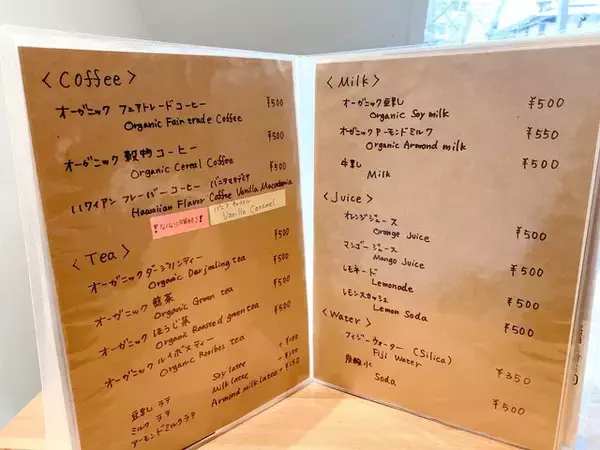 < Coffee >
オーガニック フェアトレードコーヒー ¥500
Organic Fair trade Coffee
オーガニック 穀物コーヒー ¥500
Organic Cereal Coffee
ハワイアン フレーバーコーヒー バニラマカダミア ¥500
Hawaiian Flavor Coffee Vanilla Macadamia
Vanilla Caramel
< Tea >
オーガニックダージリンティー ¥500
Organic Darjeeling tea
オーガニック 緑茶 ¥500
Organic Green tea
オーガニック ほうじ茶 ¥500
Organic Roasted green tea
オーガニック ルイボスティー ¥500
Organic Rooibos tea
豆乳 ラテ Soy latte + ¥100
ミルク ラテ Milk latte + ¥100
アーモンドミルクラテ Armond milk latte + ¥150
< Milk >
オーガニック 豆乳 ¥500
Organic Soy milk
オーガニック アーモンドミルク ¥550
Organic Armond milk
牛乳 ¥500
Milk
< Juice >
オレンジジュース ¥500
Orange Juice
マンゴージュース ¥500
Mango Juice
レモネード ¥500
Lemonade
レモンスカッシュ ¥500
Lemon Soda
< Water >
フィジーウォーター (Silica) ¥350
Fiji Water
炭酸水 ¥500
Soda